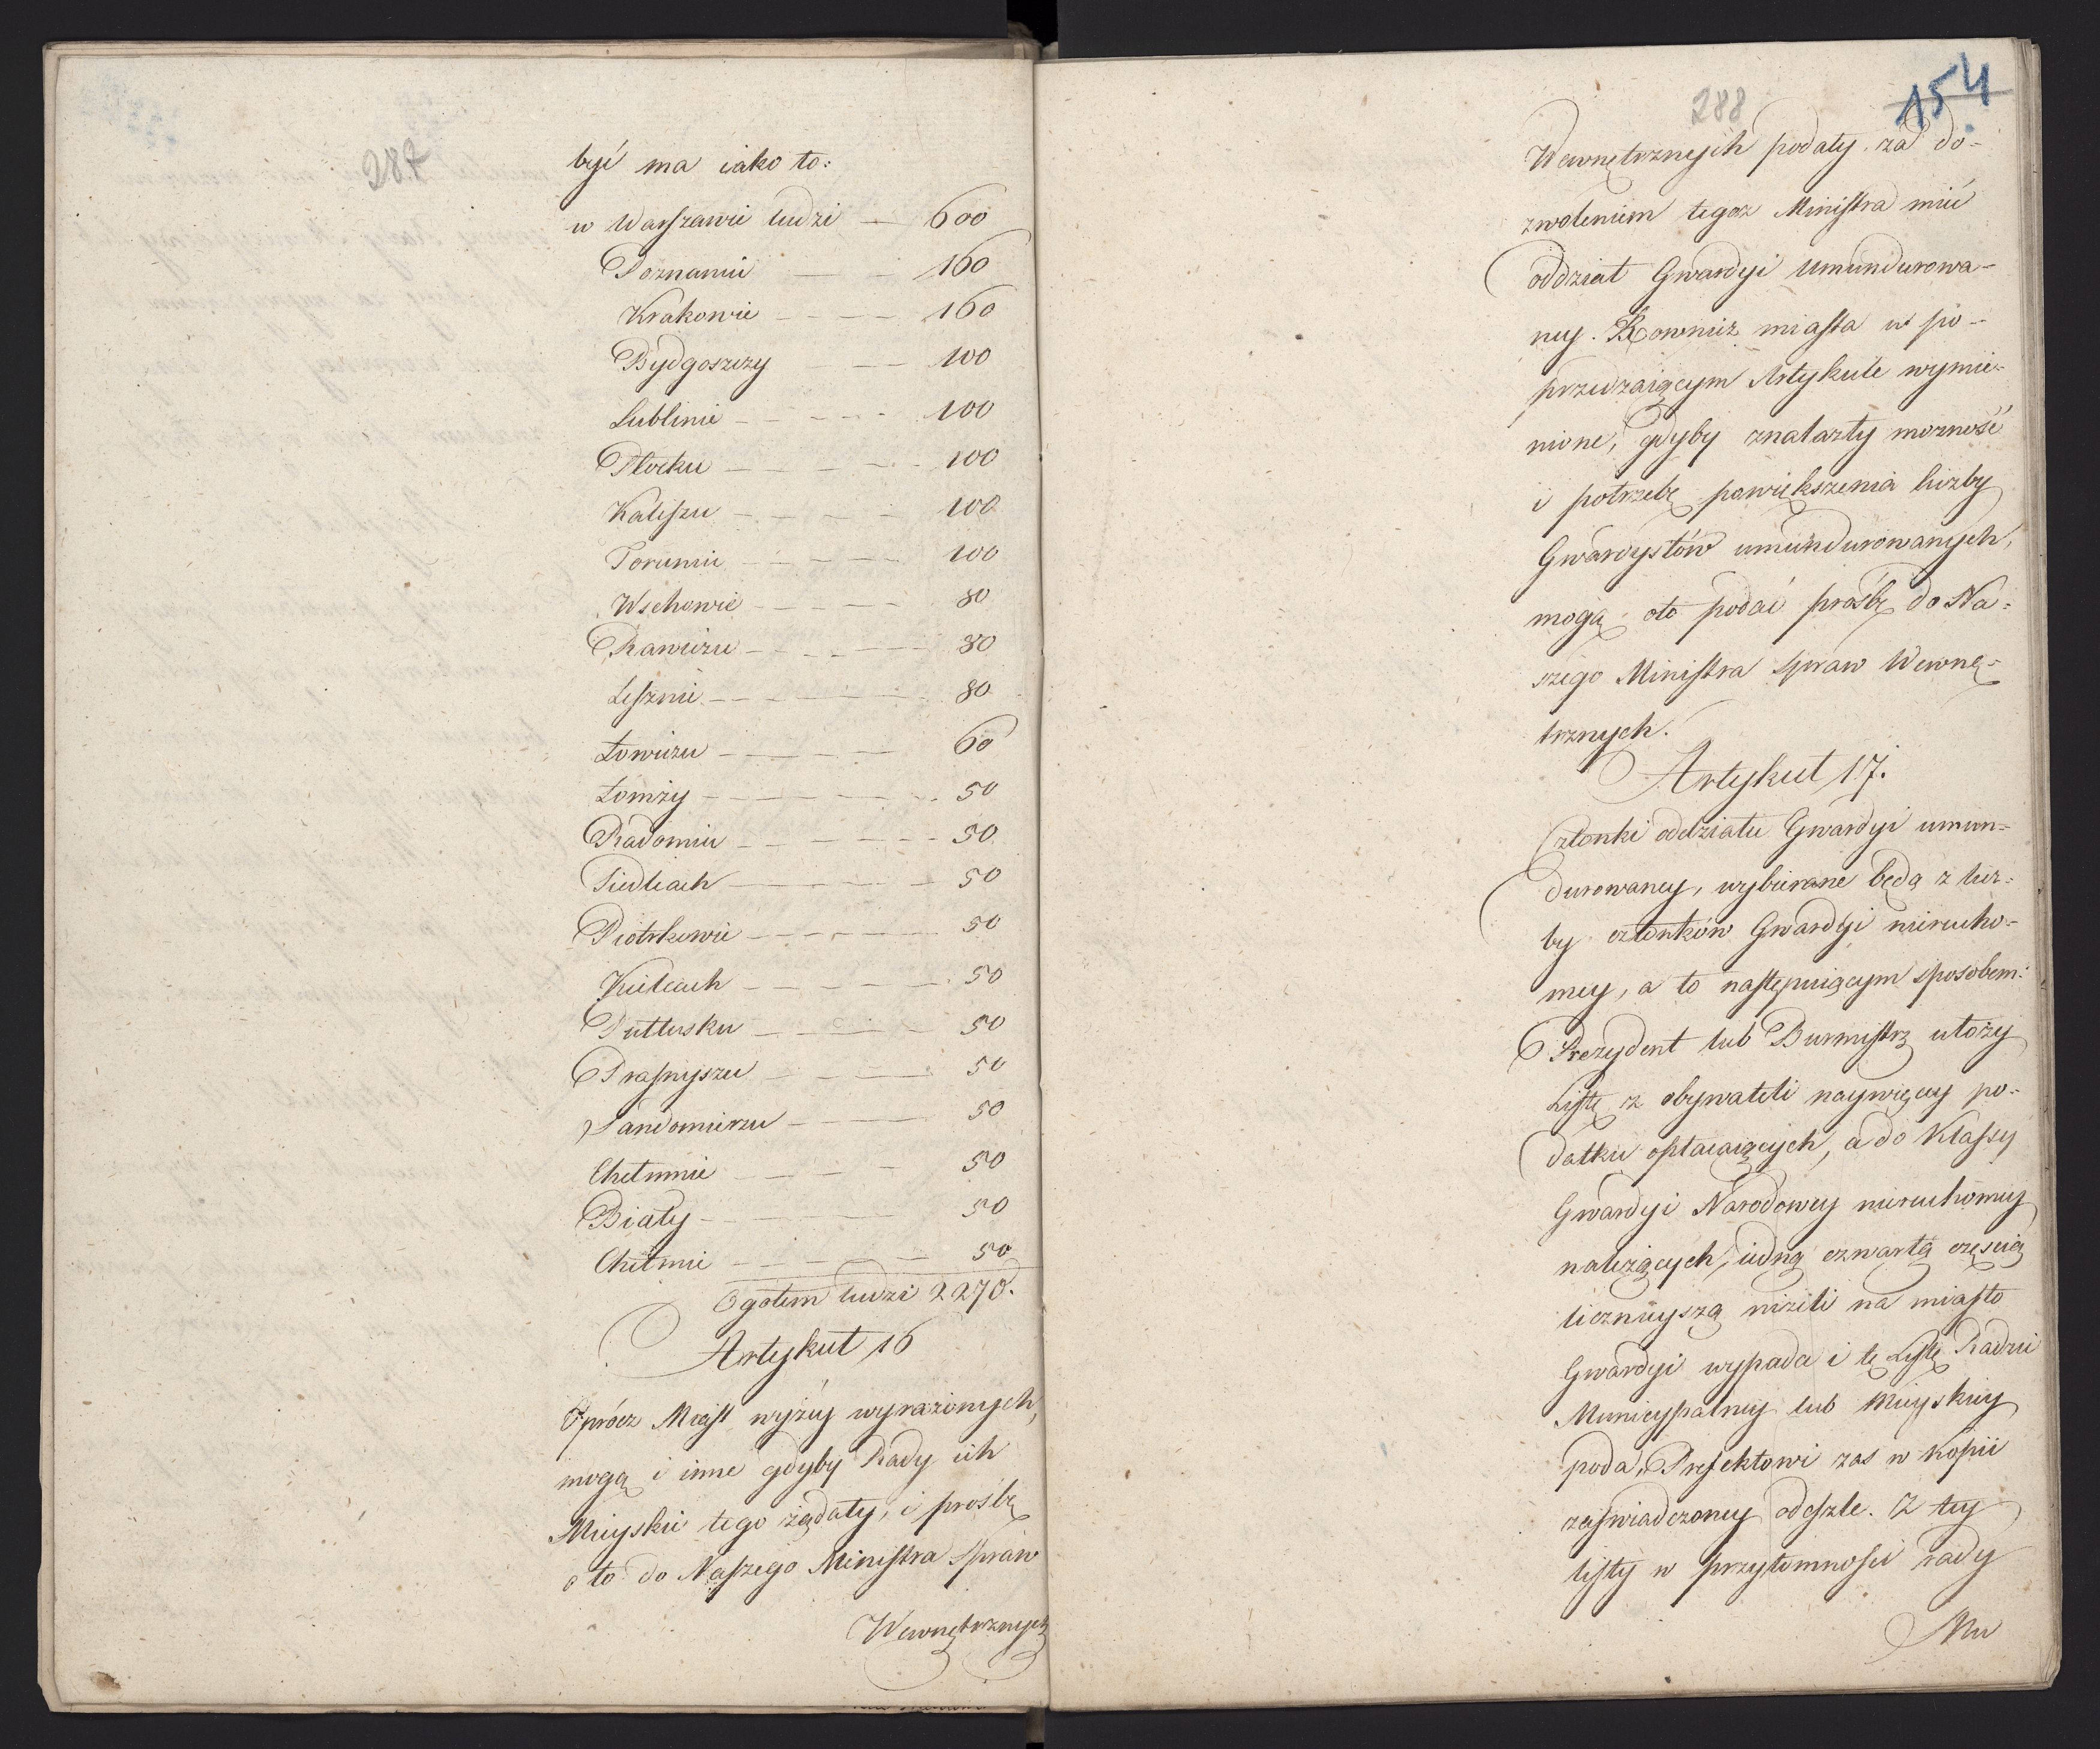 287
być ma iako to:
w Warszawie ludzi — 600
Poznaniu — — 160
Krakowie — — — 160
Bydgoszczy — — 100
Lublinie — — — — 100
Płocku — — — — 100
Kaliszu — — — — 100
Toruniu — — — — 100
Wschowie — — — — 80
Rawiczu — — — — 80
Lesznie — — — — 80
Łowiczu — — — — 60
Łomży — — — — — 50
Radomiu — — — — 50
Siedlcach — — — — 50
Piotrkowie — — — — 50
Kielcach — — — — 50
Pułtusku — — — — 50
Prasnyszu — — — 50
Sandomierzu — — — 50
Chełmnie — — — 50
Biały — — — — 50
Chełmie — — — — 50
Ogołem ludzi 2270.
Artykuł 16
Oprócz Miast wyżéy wyrażonych,
mogą i inne gdyby Rady ich
Mieyskie tego żądały, i prośbę
o to do Naszego Ministra Spraw
Wewnętrznych
288
154
Wewnętrznych podały za do-
zwoleniem tegoz Ministra mieć
oddział Gwardyi Umundurowa-
ney. Rownież miasta w po-
przedzaiącym Artykule wymie-
nione, gdyby znalazły mozność
i potrzebę powiększenia liczby
Gwardystów umundurowanych,
mogą oto podać prośbę do Na-
szego Ministra Spraw Wewnę-
trznych.
Artykuł 17.
Członki oddziału Gwardyi umun-
durowaney, wybierane będą z licz-
by członków Gwardyi nierucho-
mey, a to następuiącym sposobem:
Prezydent lub Burmistrz ułoży
Listę z obywateli naywięcey po-
datku opłacaiących, a do Klassy
Gwardyi Narodowey nieruchomey
należących, iedną czwartą częscią
licznieyszą niżeli na miasto
Gwardyi wypada i tę Listę Radzie
Municypalney lub Mieyskiey
poda, Prefektowi zas w kopii
zaswiadczoney odeszle. Z tey
listy w przytomności rady
Mu